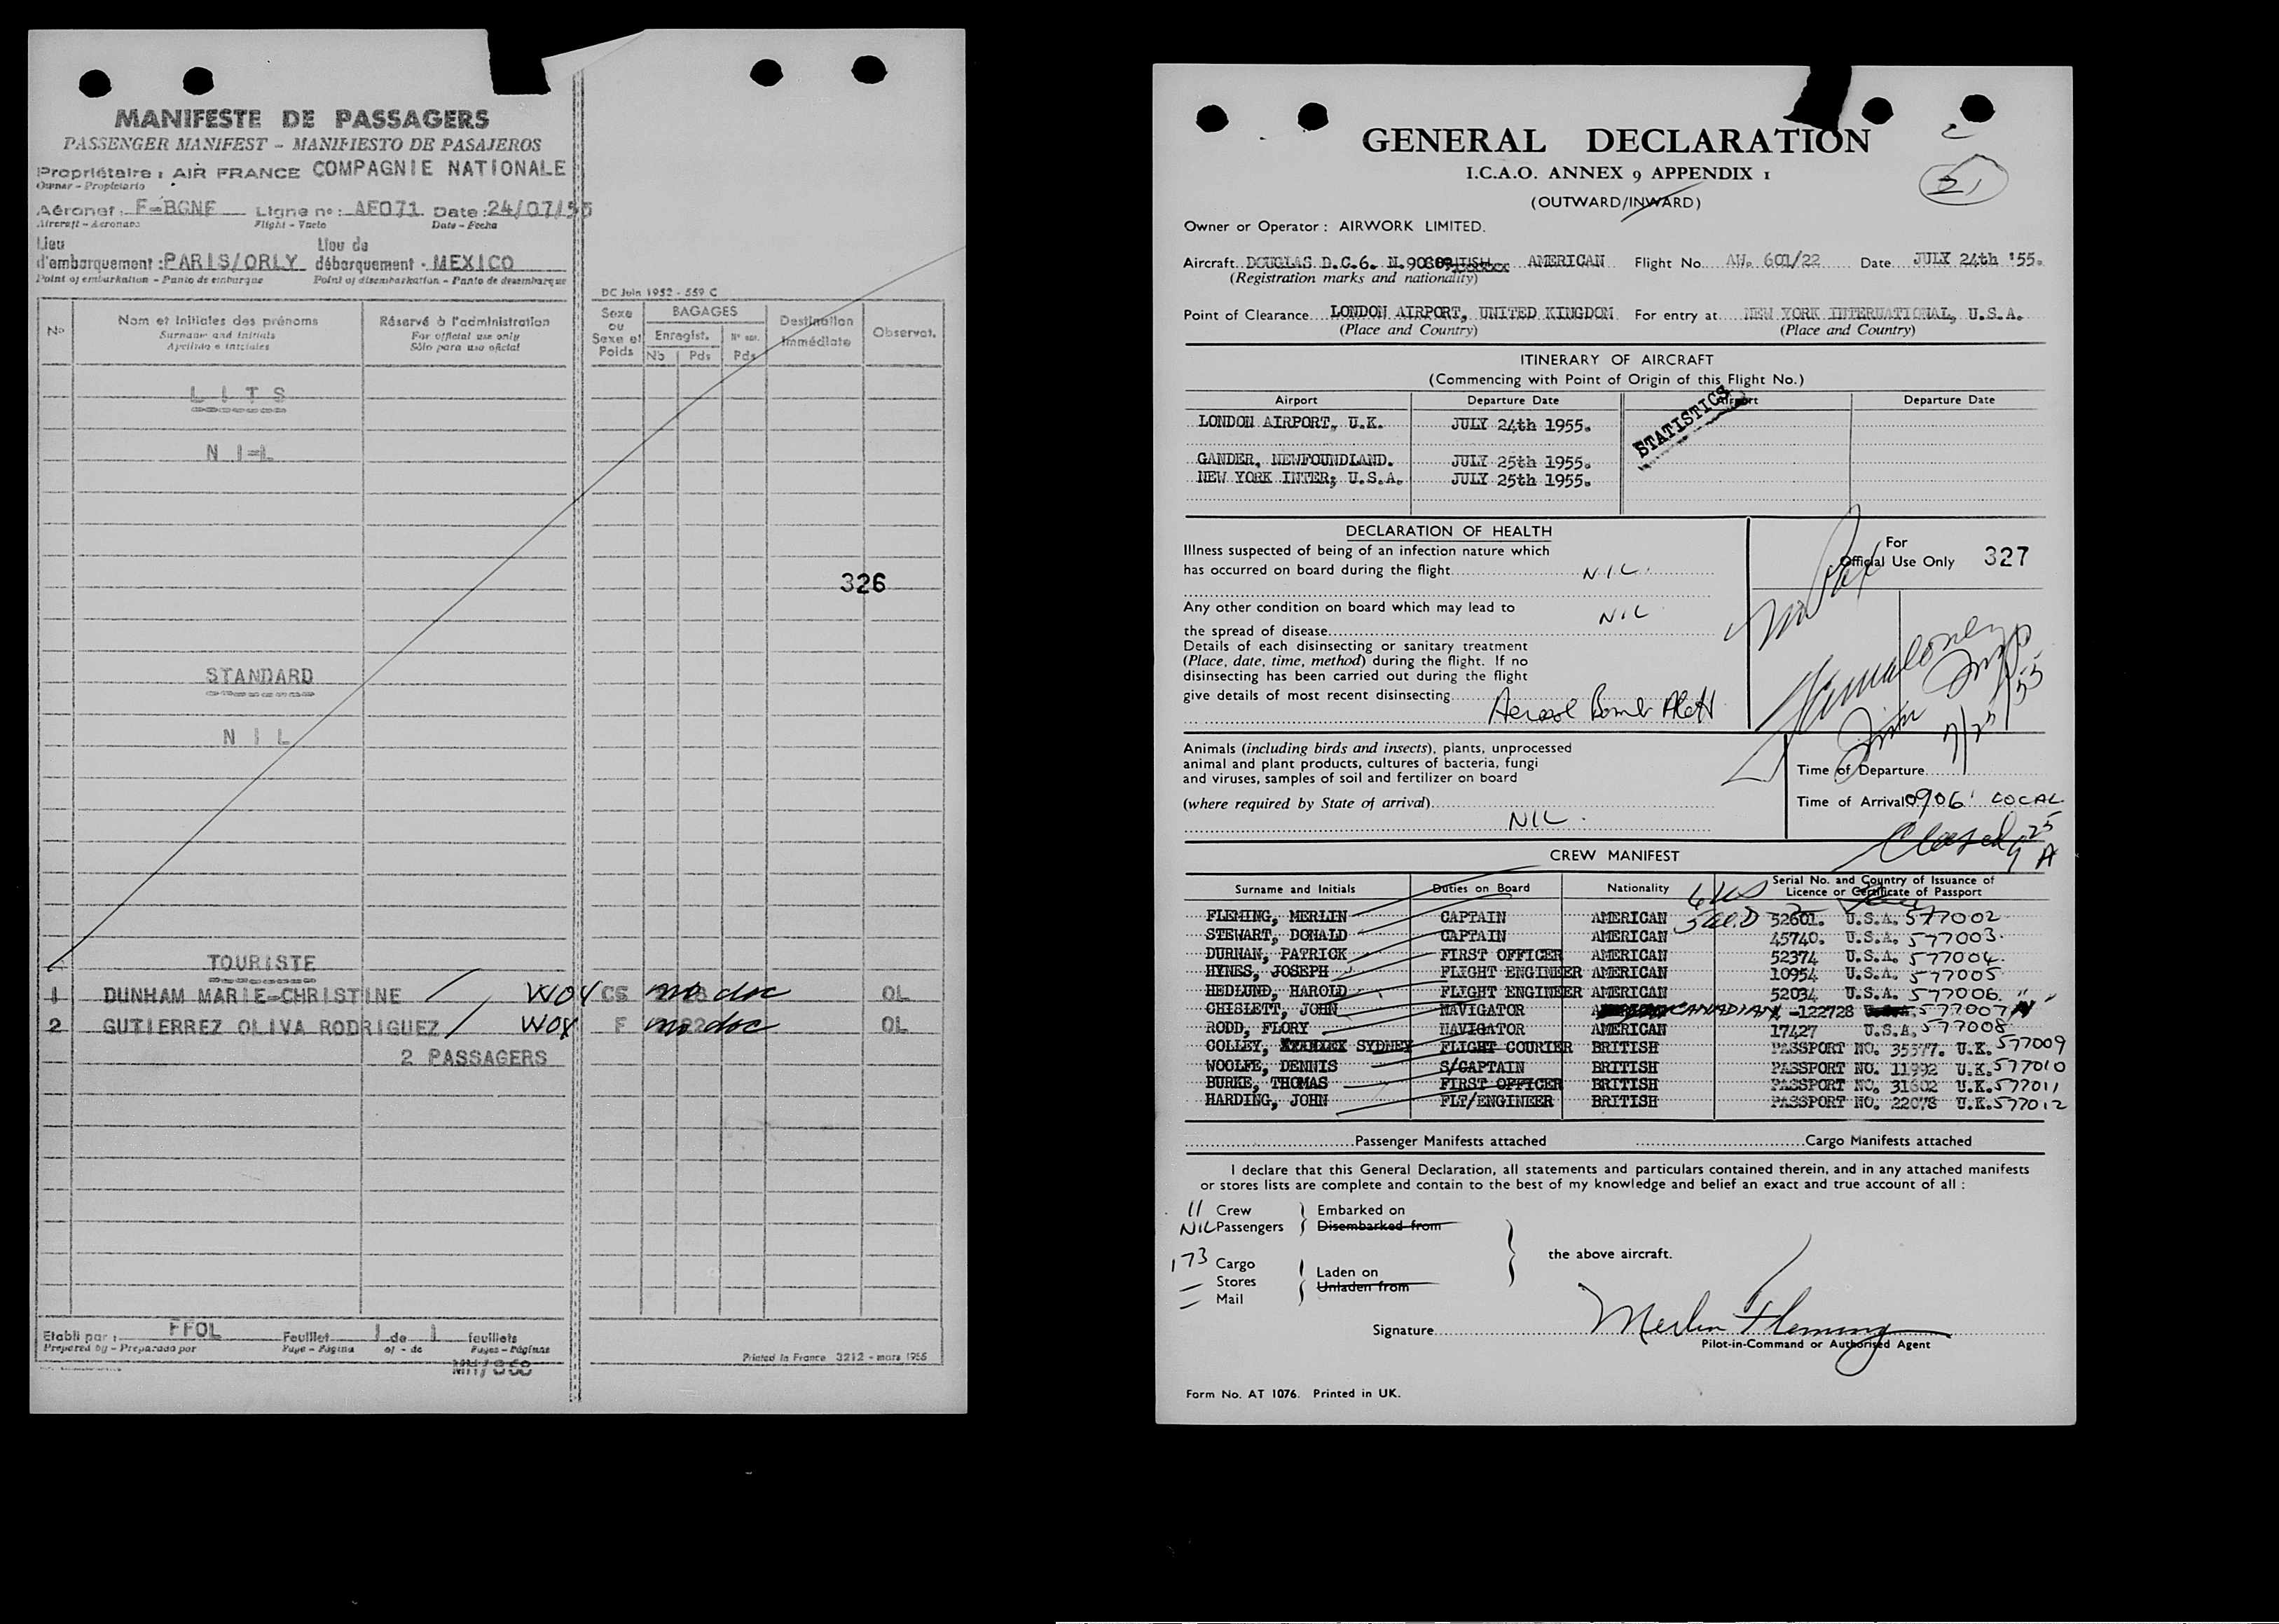 MANIFESTE DE PASSAGERS
PASSENGER MANIFEST - MANIFIESTO DE PASAJEROS
Propriétaire : AIR FRANCE COMPAGNIE NATIONALE
Owner - Propietario
Aéronef : F-BGNF Ligne no : AF071 Date : 24/07/55
Aircraft - Aeronave Flight - Vuelo Date - Fecha
Lieu d'embarquement : PARIS/ORLY Lieu de débarquement - MEXICO
Point of embarkation - Punto de embarque Point of disembarkation - Punto de desembarque
DC Juin 1952 - 559 C
No Nom et Initiales des prénoms Réservé à l'administration Sexe ou Sexe et Poids BAGAGES Destination Immédiate Observat.
Surname and Initials For official use only Enregist.
Apellido e Iniciales Sólo para uso oficial Nb Pds Pds
LITS
NIL
326
STANDARD
NIL
TOURISTE
1 DUNHAM MARIE-CHRISTINE W04 CS no doc OL
2 GUTIERREZ OLIVA RODRIGUEZ W08 F no doc OL
2 PASSAGERS
Etabli par : FFOL Feuillet 1 de 1 feuillets
Prepared by - Preparado por Page - Página of - de Pages - Páginas
Printed in France 3212 - mars 1955
GENERAL DECLARATION
I.C.A.O. ANNEX 9 APPENDIX 1
(OUTWARD/INWARD)
21
Owner or Operator : AIRWORK LIMITED.
Aircraft DOUGLAS D.C.6. AMERICAN Flight No. AW. 601/22 Date JULY 24th '55.
(Registration marks and nationality)
Point of Clearance LONDON AIRPORT, UNITED KINGDOM For entry at NEW YORK INTERNATIONAL, U.S.A.
(Place and Country) (Place and Country)
ITINERARY OF AIRCRAFT
(Commencing with Point of Origin of this Flight No.)
Airport Departure Date Airport Departure Date
STATISTICS
LONDON AIRPORT, U.K. JULY 24th 1955.
GANDER, NEWFOUNDLAND. JULY 25th 1955.
NEW YORK INTER; U.S.A. JULY 25th 1955.
DECLARATION OF HEALTH
Illness suspected of being of an infection nature which
has occurred on board during the flight NIL.
Any other condition on board which may lead to
the spread of disease NIL
Details of each disinsecting or sanitary treatment
(Place, date, time, method) during the flight. If no
disinsecting has been carried out during the flight
give details of most recent disinsecting Aerosol Bomb
For
Official Use Only 327
No Pax
7/25/55
Animals (including birds and insects), plants, unprocessed
animal and plant products, cultures of bacteria, fungi
and viruses, samples of soil and fertilizer on board
(where required by State of arrival)
NIL.
Time of Departure
Time of Arrival 0906 LOCAL
Cleared 925 A
CREW MANIFEST
Surname and Initials Duties on Board Nationality Serial No. and Country of Issuance of
Licence or Certificate of Passport
FLEMING, MERLIN CAPTAIN AMERICAN 52601. U.S.A. 577002
STEWART, DONALD CAPTAIN AMERICAN 45740. U.S.A. 577003
DURNAN, PATRICK FIRST OFFICER AMERICAN 52374 U.S.A. 577004
HYNES, JOSEPH FLIGHT ENGINEER AMERICAN 10954 U.S.A. 577005
HEDLUND, HAROLD FLIGHT ENGINEER AMERICAN 52034 U.S.A. 577006
CHISLETT, JOHN NAVIGATOR CANADIAN 122728 577007
RODD, FLORY NAVIGATOR AMERICAN 17427 U.S.A. 577008
COLLEY, SYDNEY FLIGHT COURIER BRITISH PASSPORT NO. 35377. U.K. 577009
WOOLFE, DENNIS S/CAPTAIN BRITISH PASSPORT NO. 11992 U.K. 577010
BURKE, THOMAS FIRST OFFICER BRITISH PASSPORT NO. 31602 U.K. 577011
HARDING, JOHN FLT/ENGINEER BRITISH PASSPORT NO. 22078 U.K. 577012
Passenger Manifests attached Cargo Manifests attached
I declare that this General Declaration, all statements and particulars contained therein, and in any attached manifests
or stores lists are complete and contain to the best of my knowledge and belief an exact and true account of all :
11 Crew Embarked on
NIL Passengers Disembarked from
the above aircraft.
173 Cargo
Laden on
Stores
Unladen from
Mail
Signature Merlin Fleming
Pilot-in-Command or Authorised Agent
Form No. AT 1076. Printed in UK.